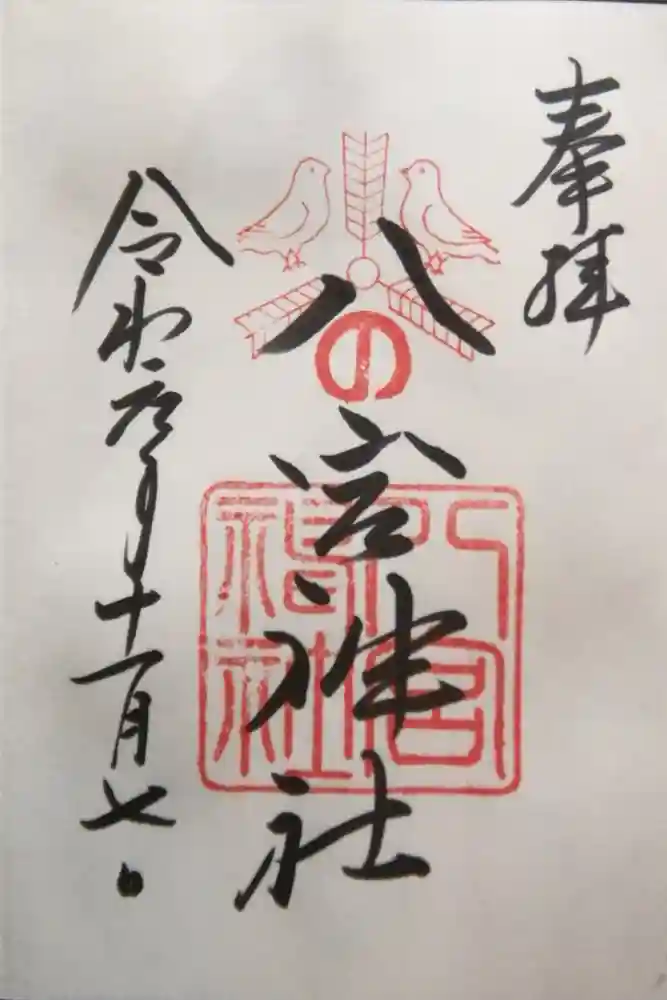 奉拝
八宮神社
の
八宮
神社
令和元年十一月七日